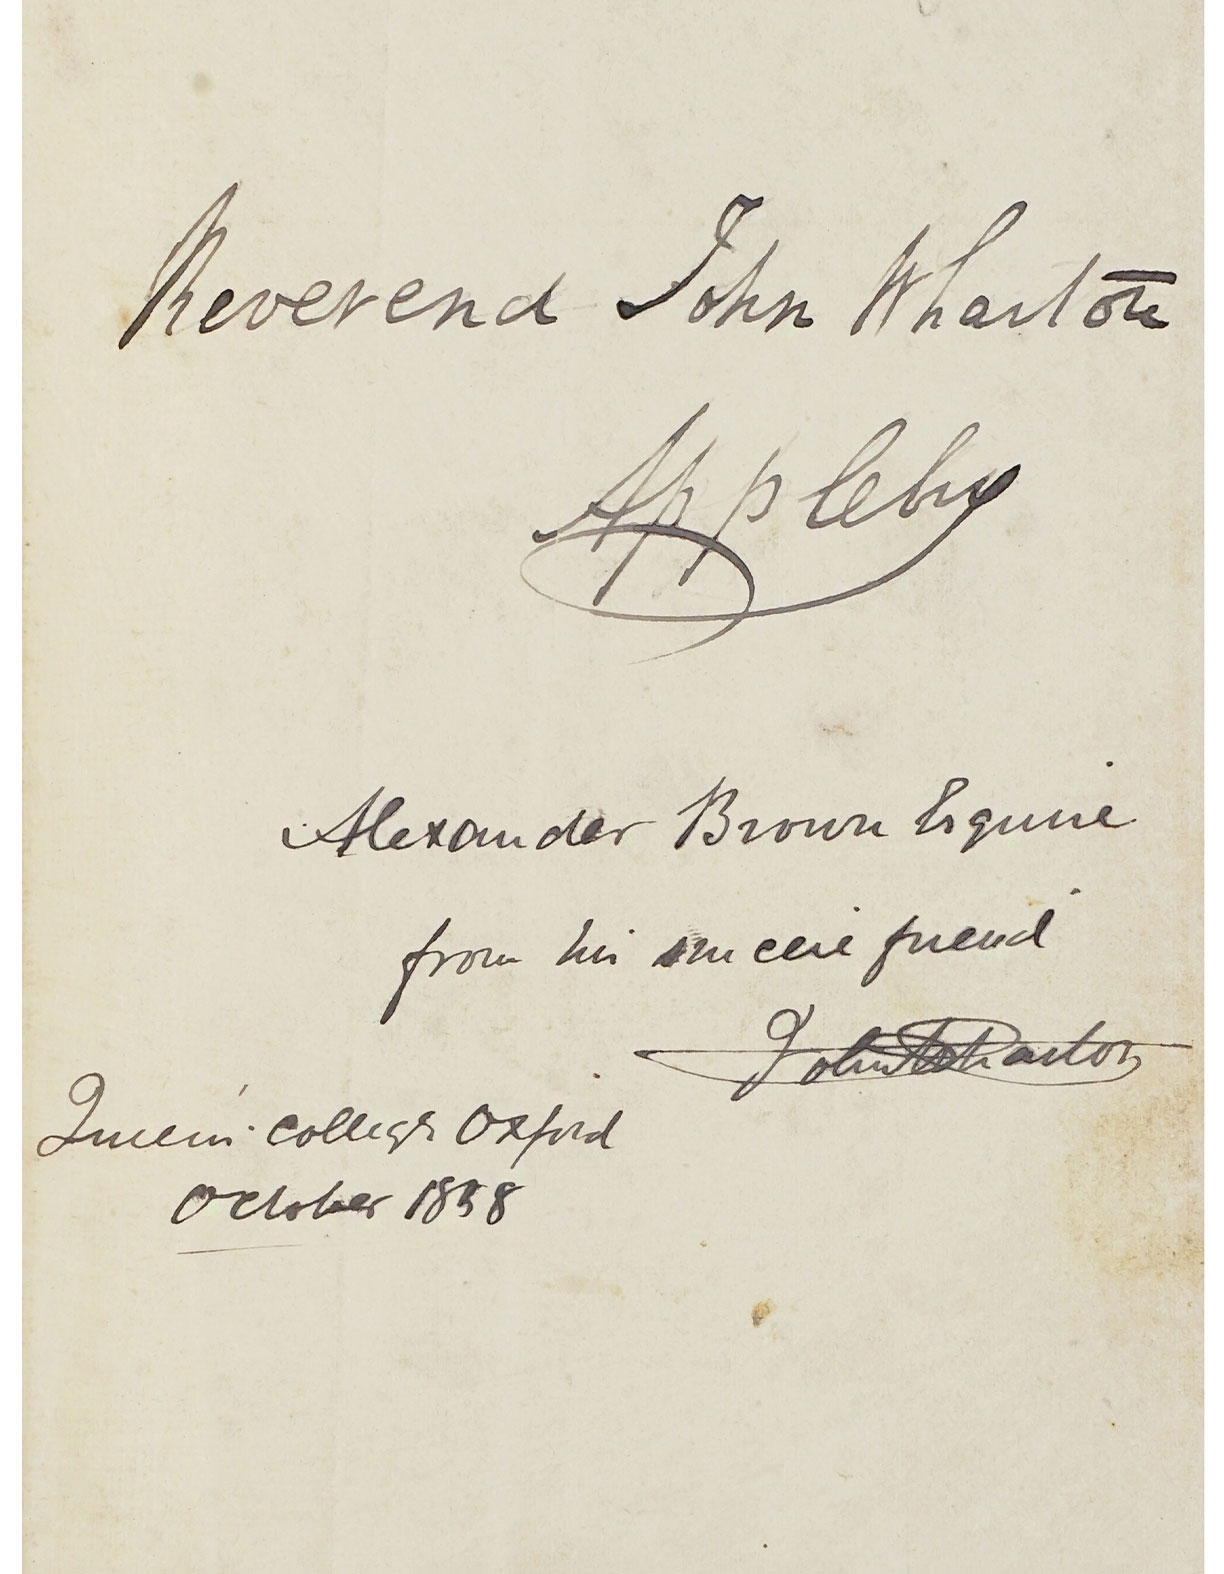 Reverend John Wharton
Appleby
Alexander Brown Esquire
from his sincere friend
John Wharton
Queen's College Oxford
October 1838